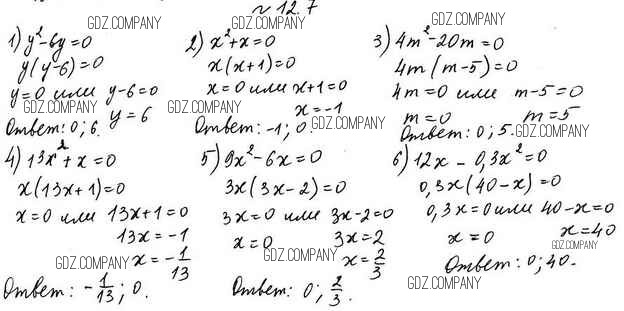 № 12.7
GDZ.COMPANY GDZ.COMPANY
1) y² - 6y = 0
y(y - 6) = 0
y = 0 или y - 6 = 0
y = 6
GDZ.COMPANY
Ответ: 0; 6.
2) x² + x = 0
x(x + 1) = 0
x = 0 или x + 1 = 0
x = -1
GDZ.COMPANY
Ответ: -1; 0.
GDZ.COMPANY
3) 4m² - 20m = 0
4m(m - 5) = 0
4m = 0 или m - 5 = 0
m = 0 m = 5
GDZ.COMPANY
Ответ: 0; 5.
4) 13x² + x = 0
GDZ.COMPANY
x(13x + 1) = 0
x = 0 или 13x + 1 = 0
13x = -1
x = -1/13
GDZ.COMPANY
Ответ: -1/13; 0.
5) 9x² - 6x = 0
GDZ.COMPANY
3x(3x - 2) = 0
3x = 0 или 3x - 2 = 0
x = 0 3x = 2
GDZ.COMPANY
x = 2/3
Ответ: 0; 2/3.
6) 12x - 0,3x² = 0
GDZ.COMPANY
0,3x(40 - x) = 0
0,3x = 0 или 40 - x = 0
x = 0 x = 40
GDZ.COMPANY
Ответ: 0; 40.
GDZ.COMPANY